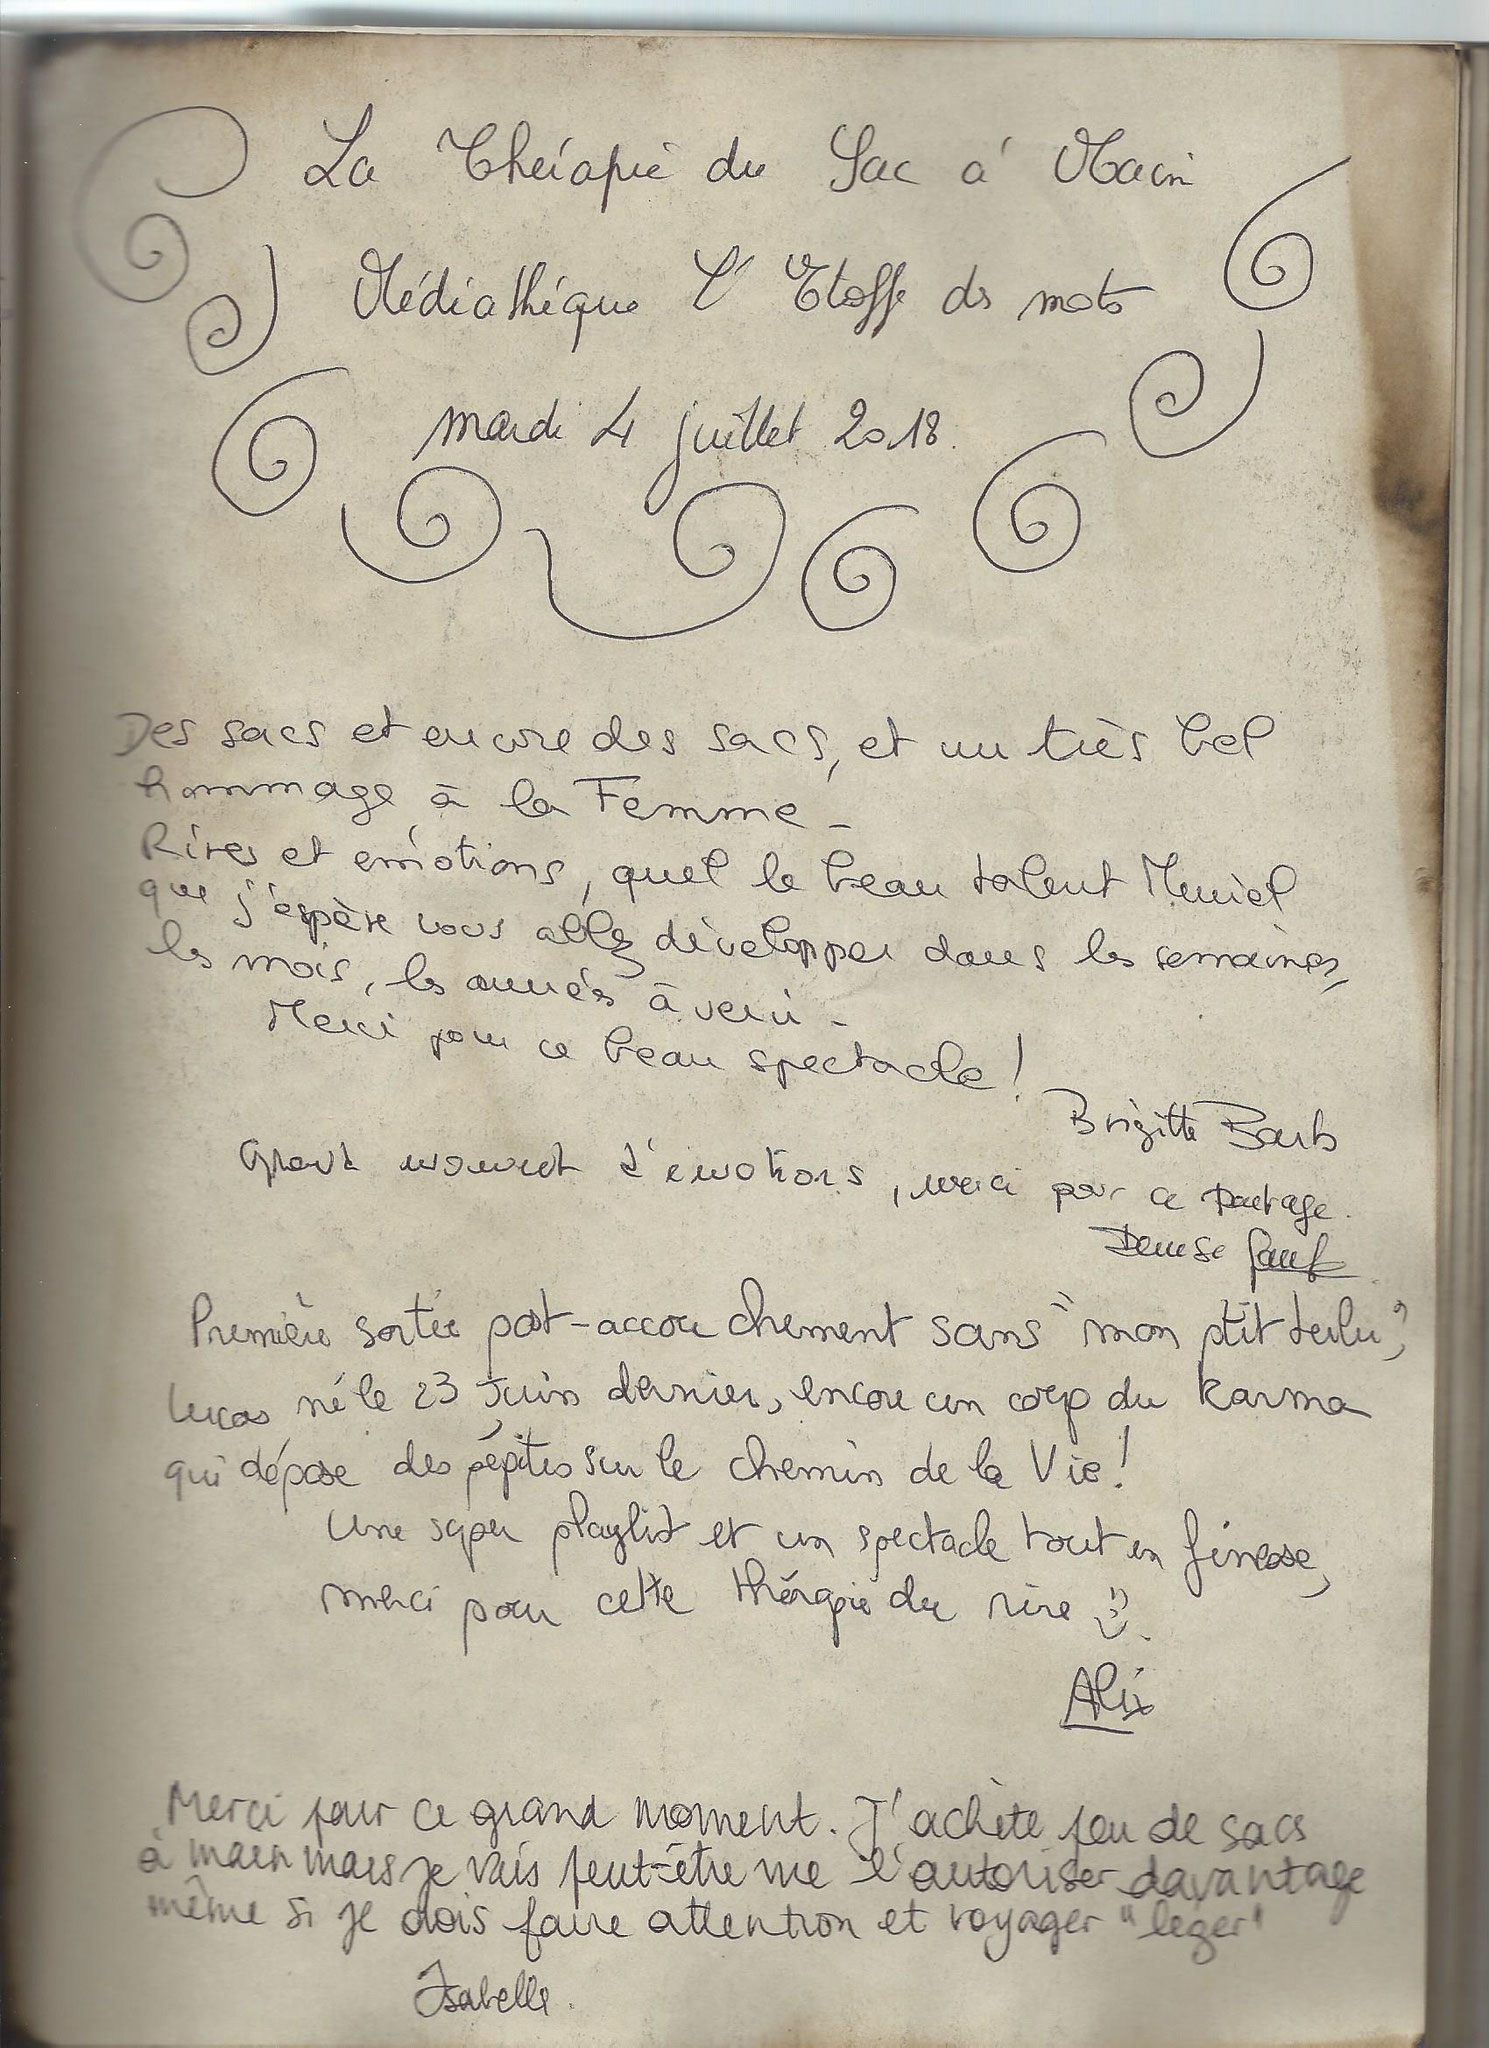 La Thérapie du Sac à Main
Médiathèque L'Etoffe des mots
mardi 4 juillet 2018.
Des sacs et encore des sacs, et un très bel
hommage à la Femme -
Rires et émotions, quel le beau talent Muriel
que j'espère vous allez développer dans les semaines,
les mois, les années à venir -
Merci pour ce beau spectacle !
Brigitte
Grand moment d'émotions, merci pour ce partage.
Denise
Première sortie post-accouchement sans "mon ptit lulu",
Lucas, né le 23 Juin dernier, encore un coup du karma
qui dépose des pépites sur le chemin de la Vie !
Une super playlist et un spectacle tout en finesse,
merci pour cette thérapie du rire
Alix
Merci pour ce grand moment. J'achète peu de sacs
à main mais je vais peut-être me l'autoriser davantage
même si je dois faire attention et voyager "léger"
Isabelle.